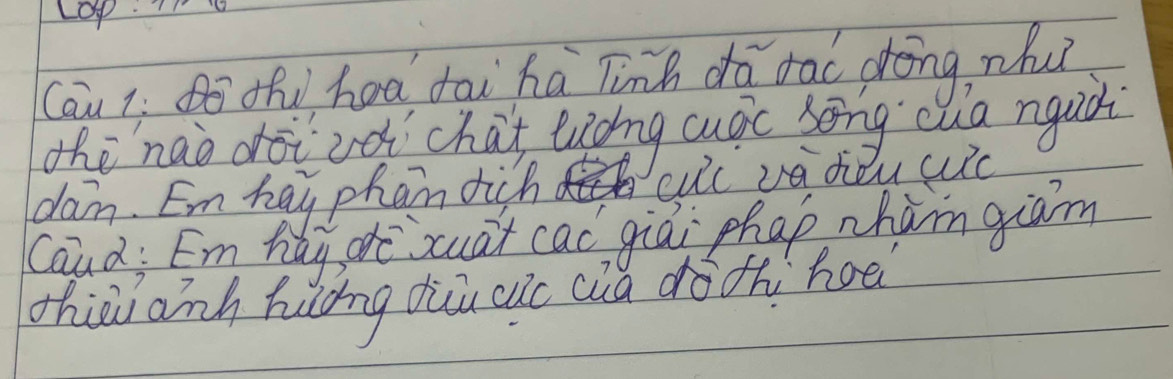 Lớp : 11
Câu 1: Đô thị hoá tại hà Tĩnh đã tác động như
thế nào đối với chất lượng cuộc sống của người
dân. Em hãy phân tích cực và tiêu cực
Câu 2: Em hãy đề xuất các giải pháp nhằm giảm
thiểu ảnh hưởng tiêu cực của đô thị hoá